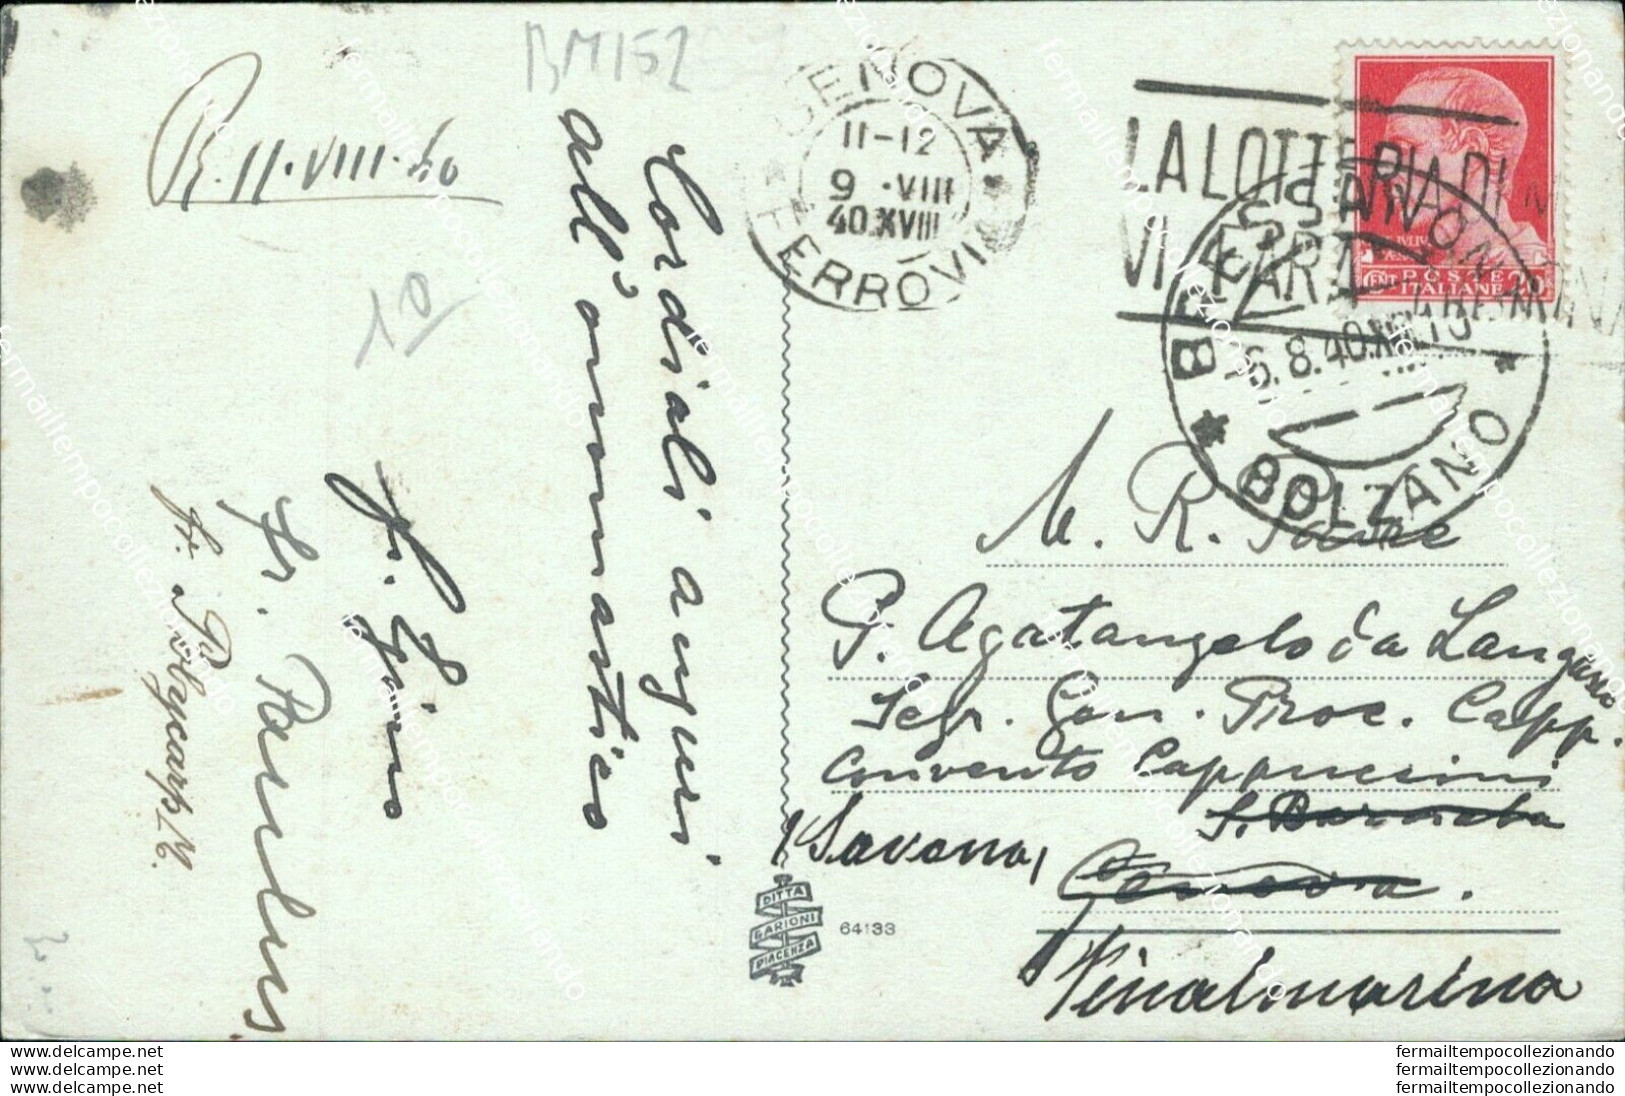 BM152
R. 11·VIII·40
10
Cordiali auguri
all'onomastico
fr. Paulus
fr. Polycarp M.
GENOVA
11-12
9 .VIII
40.XVIII
FERROVIA
LA LOTTERIA DI
POSTE
ITALIANE
BRESSANONE
6.8.40.XVIII
BOLZANO
M. R. Padre
P. Agatangelo da Langasco
Segr. Gen. Proc. Capp.
Convento Cappuccini
S. Barnaba
Savona,
Genova.
Finalmarina
DITTA
GARIONI
PIACENZA
64133
www.delcampe.net
www.delcampe.net
www.delcampe.net
fermailtempocollezionando
fermailtempocollezionando
fermailtempocollezionando